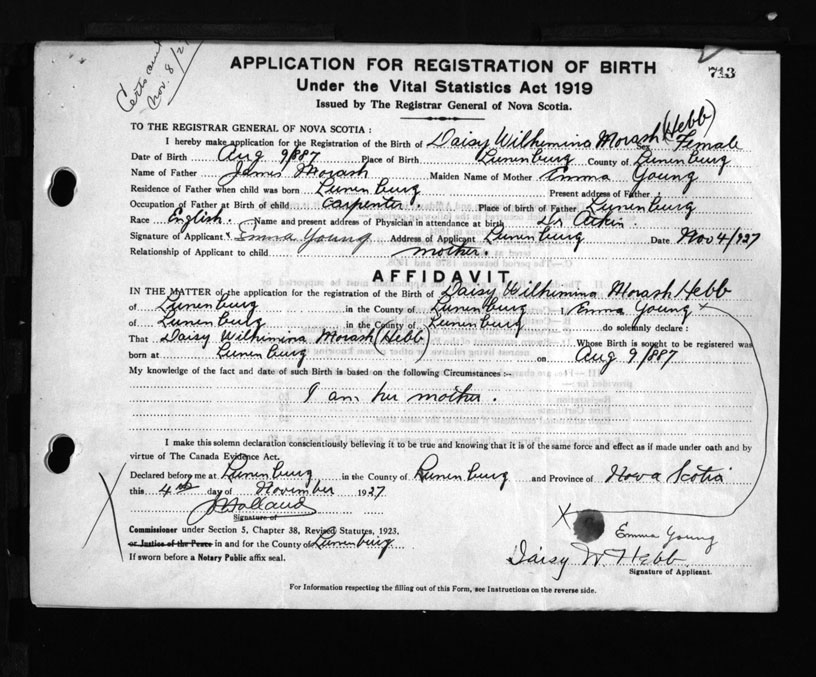 Certs
Nov. 8/27
APPLICATION FOR REGISTRATION OF BIRTH
713
Under the Vital Statistics Act 1919
Issued by The Registrar General of Nova Scotia.
TO THE REGISTRAR GENERAL OF NOVA SCOTIA :
I hereby make application for the Registration of the Birth of Daisy Wilhemina Morash (Hebb) Sex Female
Date of Birth Aug 9/887 Place of Birth Lunenburg County of Lunenburg
Name of Father James Morash Maiden Name of Mother Emma Young
Residence of Father when child was born Lunenburg Present address of Father
Occupation of Father at Birth of child carpenter. Place of birth of Father Lunenburg
Race English. Name and present address of Physician in attendance at birth Dr Aitkin
Signature of Applicant Emma Young Address of Applicant Lunenburg Date Nov 4/927
Relationship of Applicant to child mother.
AFFIDAVIT
IN THE MATTER of the application for the registration of the Birth of Daisy Wilhemina Morash Hebb
of Lunenburg in the County of Lunenburg I, Emma Young x
of Lunenburg in the County of Lunenburg do solemnly declare :
That Daisy Wilhimina Morash (Hebb) Whose Birth is sought to be registered was
born at Lunenburg on Aug 9/887
My knowledge of the fact and date of such Birth is based on the following Circumstances :-
I am her mother.
I make this solemn declaration conscientiously believing it to be true and knowing that it is of the same force and effect as if made under oath and by
virtue of The Canada Evidence Act.
Declared before me at Lunenburg in the County of Lunenburg and Province of Nova Scotia
this 4th day of November 1927
Holland
Signature of
X
Commissioner under Section 5, Chapter 38, Revised Statutes, 1923,
or Justice of the Peace in and for the County of Lunenburg
If sworn before a Notary Public affix seal.
X Emma Young
Daisy W. Hebb
Signature of Applicant.
For Information respecting the filling out of this Form, see Instructions on the reverse side.